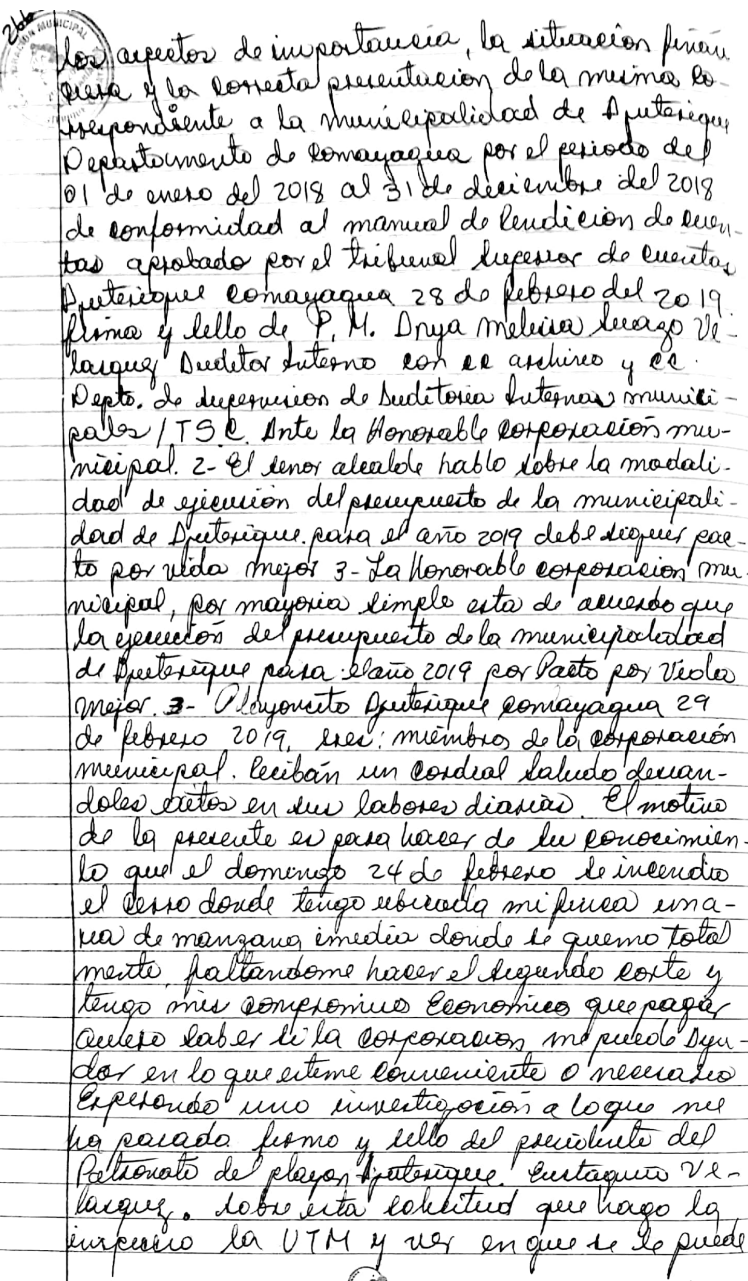 266
los aspectos de importancia, la situación finan
ciera y la correcta presentacion de la misma co-
rrespondiente a la municipalidad de Ajuterique
Departamento de Comayagua por el periodo del
01 de enero del 2018 al 31 de diciembre del 2018
de conformidad al manual de Rendición de cuen-
tas aprobado por el tribunal superior de cuentas
Ajuterique Comayagua 28 de febrero del 2019.
firma y sello de P. M. Melissa Ve-
lasquez Auditor Interno con cc archivo y cc.
Depto. de supervision de Auditoria Internas munici-
pales / TSC. Ante la Honorable corporación mu-
nicipal. 2- El senor alcalde hablo sobre la modali-
dad de ejecusión del presupuesto de la municipali-
dad de Ajuterique para el año 2019 debe siquer pac-
to por vida mejor 3- La Honorable corporacion mu-
nicipal, por mayoria simple esta de acuerdo que
la ejecución del presupuesto de la municipalidad
de Ajuterique para el año 2019 por Pacto por Vida
Mejor. 3- Playoncito Ajuterique Comayagua 29
de febrero 2019, sres: miembros de la corporación
municipal. Reciban un cordial saludo decian-
doles exitos en sus labores diarias. El motivo
de la presente es para hacer de su conocimien-
to que el domingo 24 de febrero se incendio
el cerro donde tengo ubicada mi finca una a-
rea de manzana imedia donde se quemo total
mente, faltandome hacer el segundo corte y
tengo mis compromisos Economico que pagar
Quiero saber si la corporacion me puede Ayu-
dar en lo que estime conveniente o necesario
Esperando una investigación a lo que me
ha pasado firmo y sello del presidente del
Patronato de playon Ajuterique. Eustaquio Ve-
lasquez. sobre esta solicitud que haga la
inspeccio la UTM y ver en que se le puede